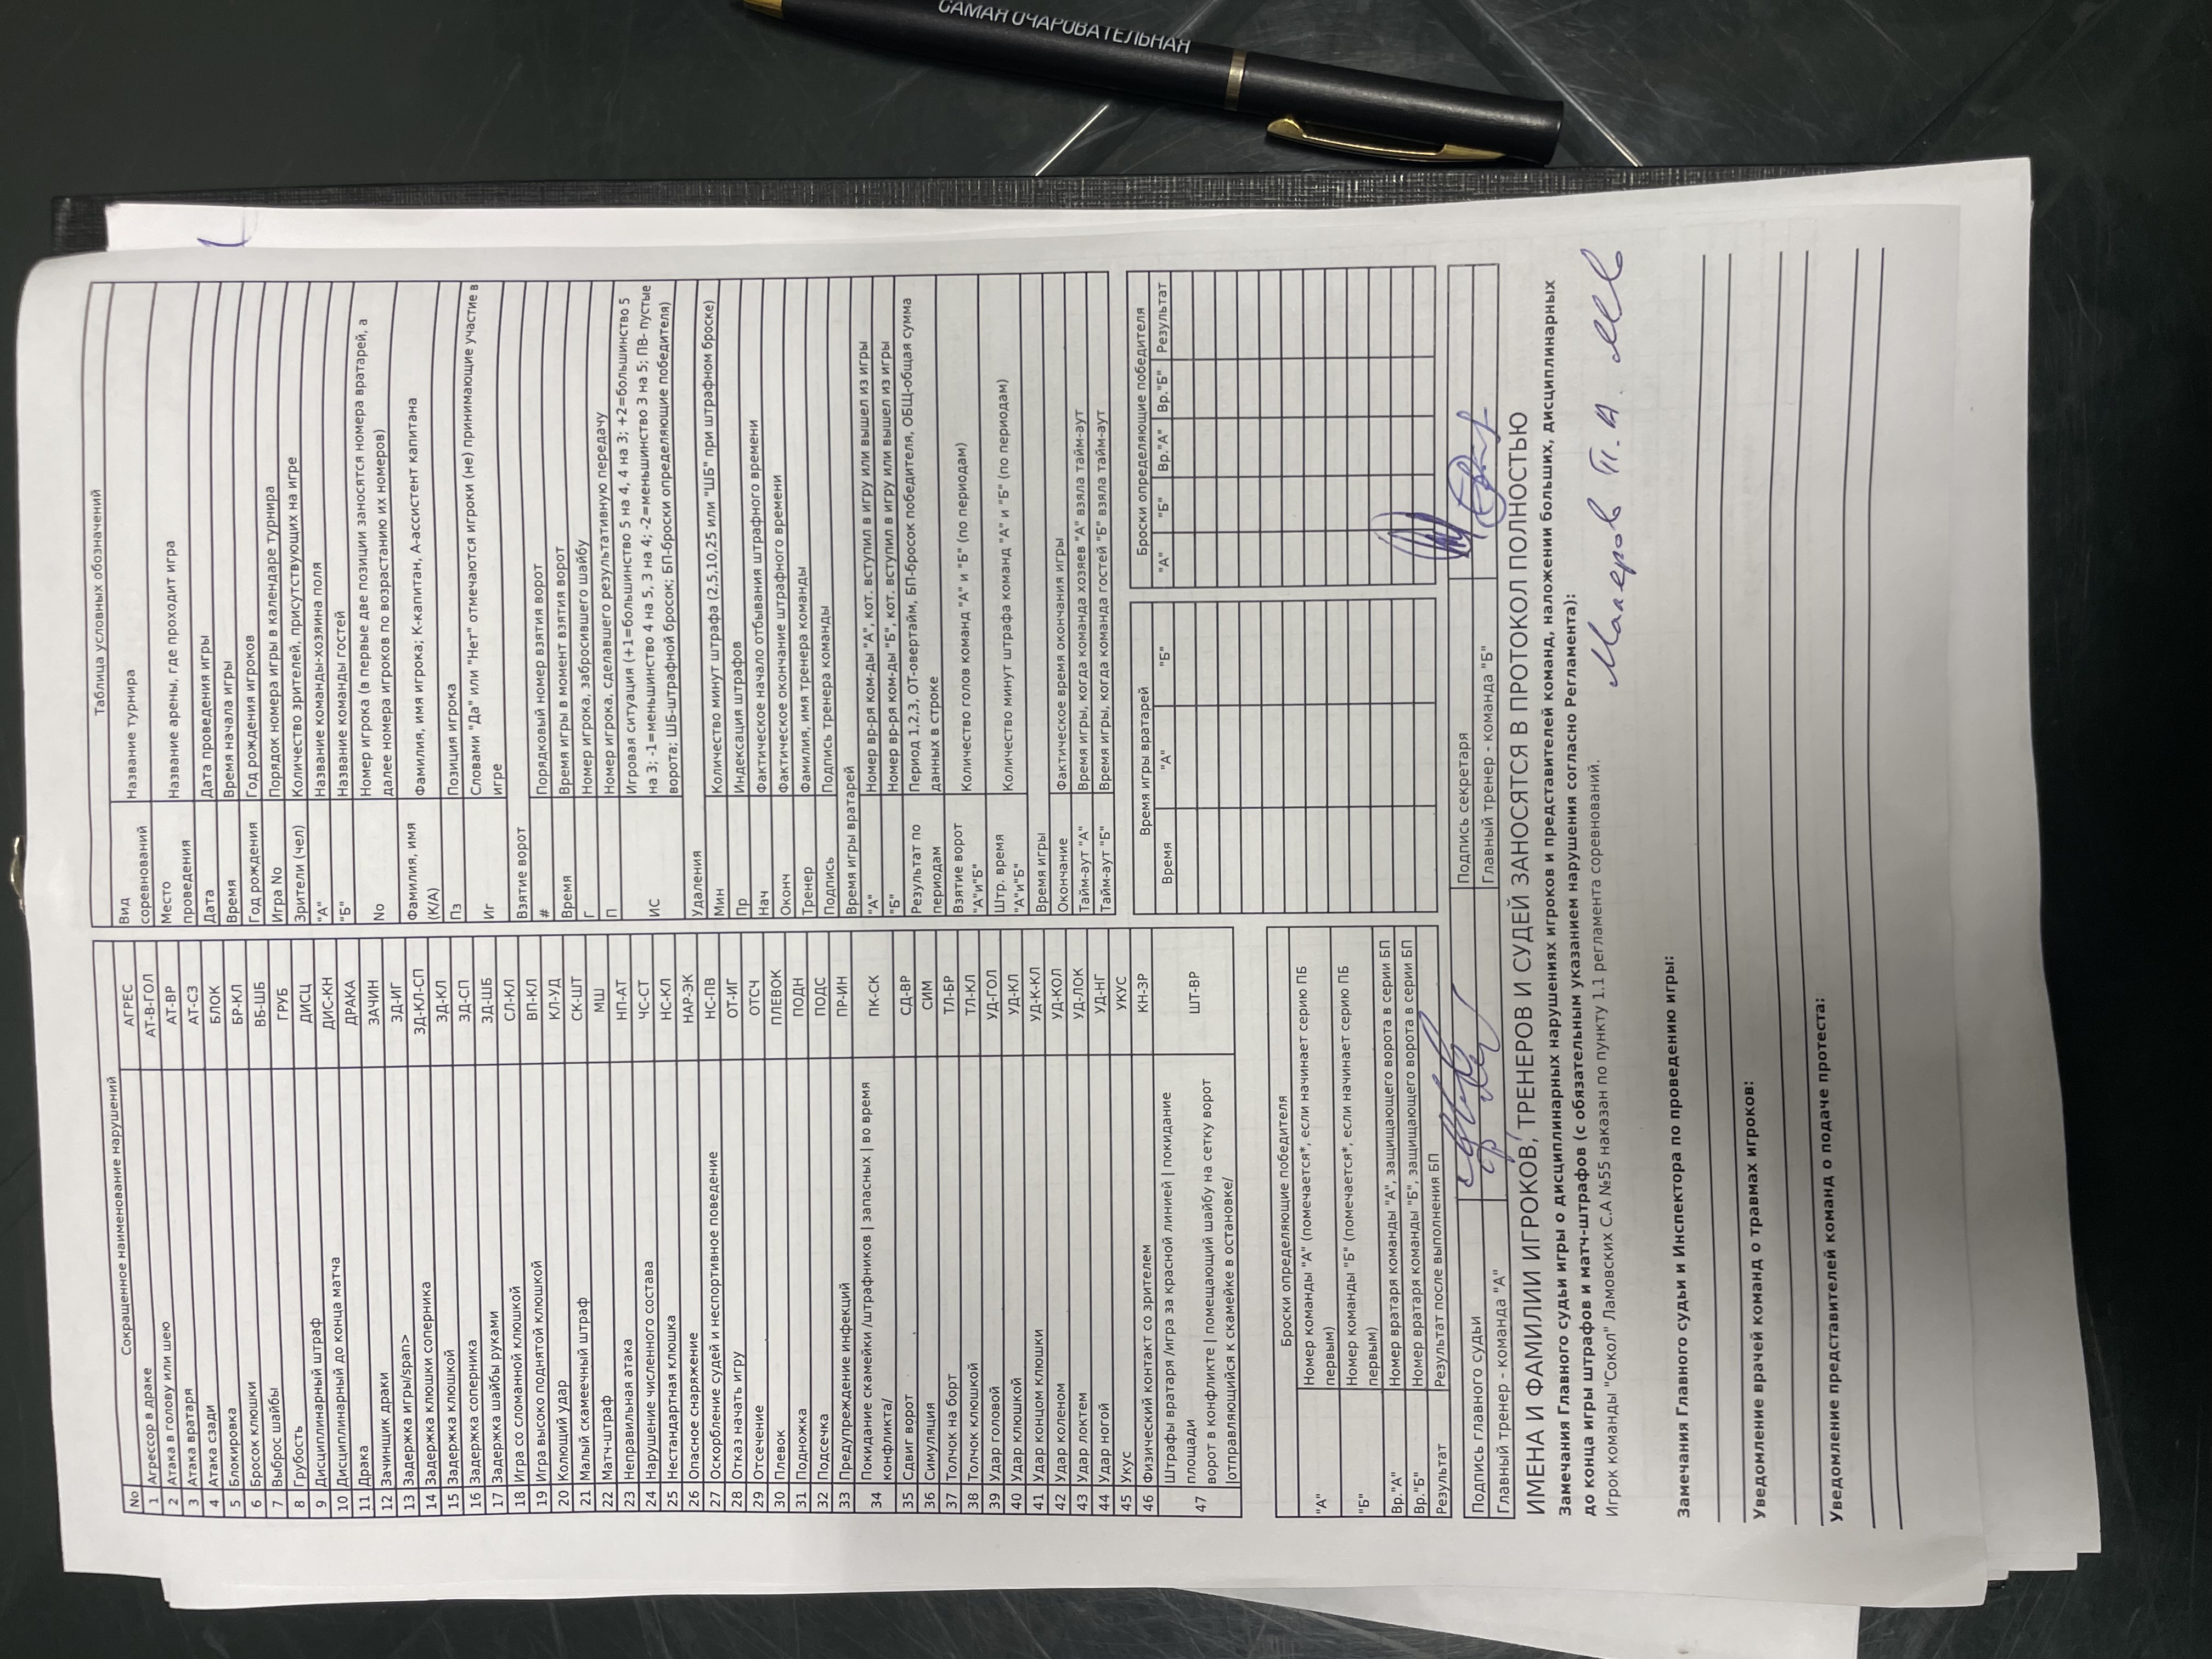 САМАЯ ОЧАРОВАТЕЛЬНАЯ
Сокращенное наименование нарушений
No АГРЕС
1 Агрессор в драке АТ-В-ГОЛ
2 Атака в голову или шею АТ-ВР
3 Атака вратаря АТ-СЗ
4 Атака сзади БЛОК
5 Блокировка БР-КЛ
6 Бросок клюшки ВБ-ШБ
7 Выброс шайбы ГРУБ
8 Грубость ДИСЦ
9 Дисциплинарный штраф ДИС-КН
10 Дисциплинарный до конца матча ДРАКА
11 Драка ЗАЧИН
12 Зачинщик драки ЗД-ИГ
13 Задержка игры/span> ЗД-КЛ-СП
14 Задержка клюшки соперника ЗД-КЛ
15 Задержка клюшкой ЗД-СП
16 Задержка соперника ЗД-ШБ
17 Задержка шайбы руками СЛ-КЛ
18 Игра со сломанной клюшкой ВП-КЛ
19 Игра высоко поднятой клюшкой КЛ-УД
20 Колющий удар СК-ШТ
21 Малый скамеечный штраф МШ
22 Матч-штраф НП-АТ
23 Неправильная атака ЧС-СТ
24 Нарушение численного состава НС-КЛ
25 Нестандартная клюшка НАР-ЭК
26 Опасное снаряжение НС-ПВ
27 Оскорбление судей и неспортивное поведение ОТ-ИГ
28 Отказ начать игру ОТСЧ
29 Отсечение ПЛЕВОК
30 Плевок ПОДН
31 Подножка ПОДС
32 Подсечка ПР-ИН
33 Предупреждение инфекций
34 Покидание скамейки /штрафников | запасных | во время ПК-СК
конфликта/
35 Сдвиг ворот СД-ВР
36 Симуляция СИМ
37 Толчок на борт ТЛ-БР
38 Толчок клюшкой ТЛ-КЛ
39 Удар головой УД-ГОЛ
40 Удар клюшкой УД-КЛ
41 Удар концом клюшки УД-К-КЛ
42 Удар коленом УД-КОЛ
43 Удар локтем УД-ЛОК
44 Удар ногой УД-НГ
45 Укус УКУС
46 Физический контакт со зрителем КН-ЗР
47 Штрафы вратаря /игра за красной линией | покидание ШТ-ВР
площади
ворот в конфликте | помещающий шайбу на сетку ворот
|отправляющийся к скамейке в остановке/
Таблица условных обозначений
Вид соревнований Название турнира
Место проведения Название арены, где проходит игра
Дата Дата проведения игры
Время Время начала игры
Год рождения Год рождения игроков
Игра No Порядок номера игры в календаре турнира
Зрители (чел) Количество зрителей, присутствующих на игре
"А" Название команды-хозяина поля
"Б" Название команды гостей
No Номер игрока (в первые две позиции заносятся номера вратарей, а
далее номера игроков по возрастанию их номеров)
Фамилия, имя (К/А) Фамилия, имя игрока; К-капитан, А-ассистент капитана
Пз Позиция игрока
Иг Словами "Да" или "Нет" отмечаются игроки (не) принимающие участие в
игре
Взятие ворот
# Порядковый номер взятия ворот
Время Время игры в момент взятия ворот
Г Номер игрока, забросившего шайбу
П Номер игрока, сделавшего результативную передачу
ИС Игровая ситуация (+1=большинство 5 на 4, 4 на 3; +2=большинство 5
на 3; -1=меньшинство 4 на 5, 3 на 4; -2=меньшинство 3 на 5; ПВ- пустые
ворота; ШБ-штрафной бросок; БП-броски определяющие победителя)
Удаления
Мин Количество минут штрафа (2,5,10,25 или "ШБ" при штрафном броске)
Пр Индексация штрафов
Нач Фактическое начало отбывания штрафного времени
Оконч Фактическое окончание штрафного времени
Тренер Фамилия, имя тренера команды
Подпись Подпись тренера команды
Время игры вратарей
"А" Номер вр-ря ком-ды "А", кот. вступил в игру или вышел из игры
"Б" Номер вр-ря ком-ды "Б", кот. вступил в игру или вышел из игры
Результат по периодам Период 1,2,3, ОТ-овертайм, БП-бросок победителя, ОБЩ-общая сумма
данных в строке
Взятие ворот "А"и"Б" Количество голов команд "А" и "Б" (по периодам)
Штр. время "А"и"Б" Количество минут штрафа команд "А" и "Б" (по периодам)
Время игры
Окончание Фактическое время окончания игры
Тайм-аут "А" Время игры, когда команда хозяев "А" взяла тайм-аут
Тайм-аут "Б" Время игры, когда команда гостей "Б" взяла тайм-аут
Броски определяющие победителя
"А" Номер команды "А" (помечается*, если начинает серию ПБ
первым)
"Б" Номер команды "Б" (помечается*, если начинает серию ПБ
первым)
Вр."А" Номер вратаря команды "А", защищающего ворота в серии БП
Вр."Б" Номер вратаря команды "Б", защищающего ворота в серии БП
Результат Результат после выполнения БП
Время игры вратарей
Время "А" "Б"
Броски определяющие победителя
"А" "Б" Вр."А" Вр."Б" Результат
Подпись главного судьи Подпись секретаря
Главный тренер - команда "А" Главный тренер - команда "Б"
ИМЕНА И ФАМИЛИИ ИГРОКОВ, ТРЕНЕРОВ И СУДЕЙ ЗАНОСЯТСЯ В ПРОТОКОЛ ПОЛНОСТЬЮ
Замечания Главного судьи игры о дисциплинарных нарушениях игроков и представителей команд, наложении больших, дисциплинарных
до конца игры штрафов и матч-штрафов (с обязательным указанием нарушения согласно Регламента):
Игрок команды "Сокол" Ламовских С.А №55 наказан по пункту 1.1 регламента соревнований.
Замечания Главного судьи и Инспектора по проведению игры:
Уведомление врачей команд о травмах игроков:
Уведомление представителей команд о подаче протеста: